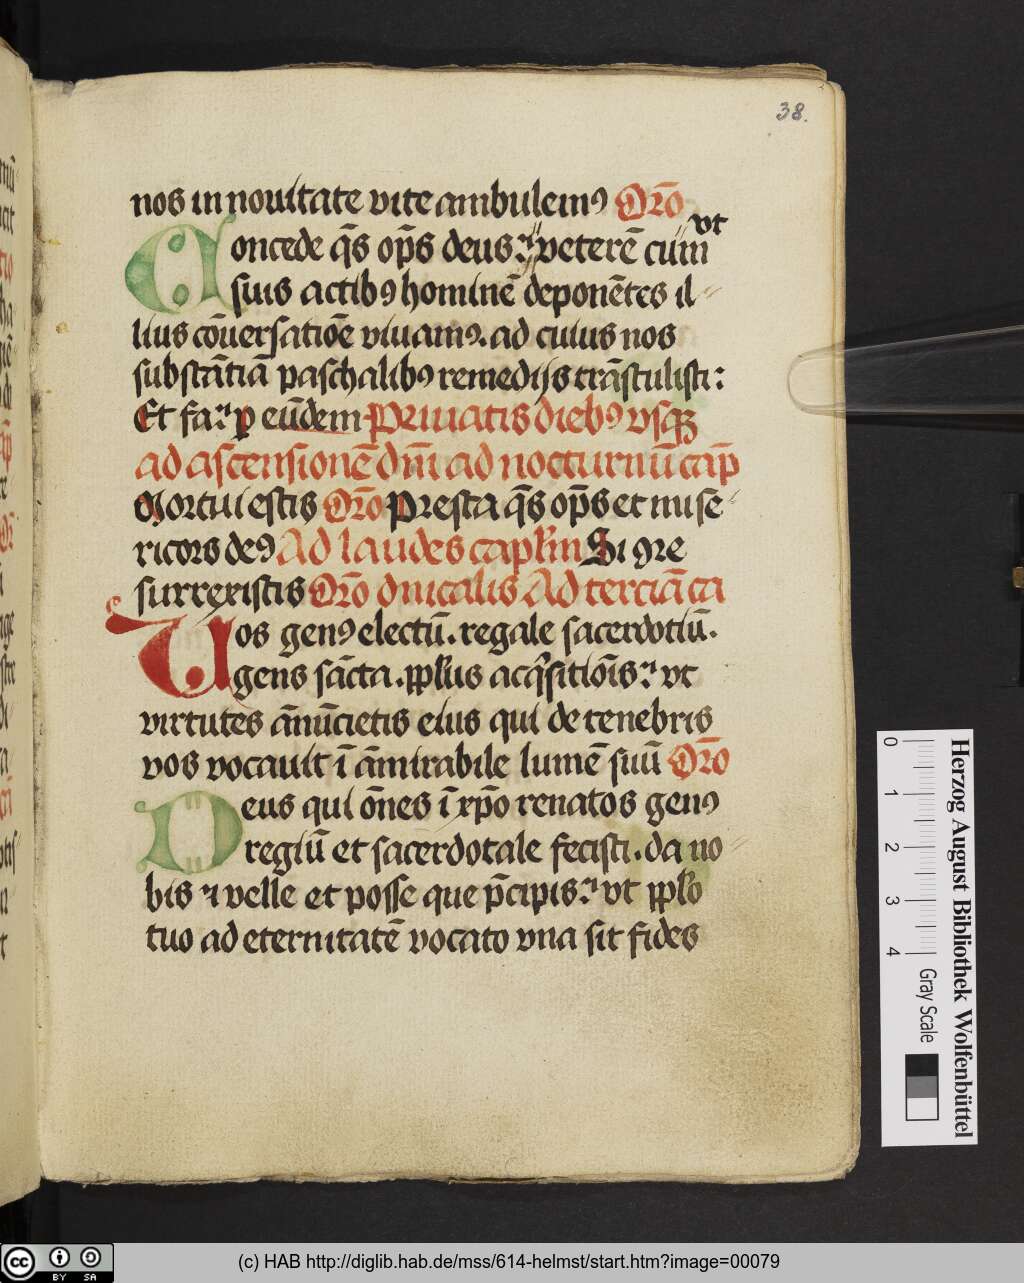 38.
nos in nouitate vite ambulemꝰ Oro̅
ut
Concede q̅s op̅s deus: veterē cūm
suis actibꝰ hominē deponētes il″
lius cōuersatiōe viuamꝰ. ad cuius nos
substātiā paschalibꝰ remedijs trāstulisti:
Et fa: p eūdem Priuatis diebꝰ vsqꝫ
ad ascensionē dn̄i ad nocturnū cap̅
Mortui estis Oro̅ Presta q̅s op̅s et mise″
ricors deꝰ Ad laudes capl̅m Si ꝯre
surrexistis Oro̅ dn̄icalis Ad terciā ca
Uos genꝰ electū. regale sacerdotiū.
gens sācta. ppl̅us acq̇sitiōis: vt
virtutes ānūcietis eius qui de tenebris
vos vocauit ī āmirabile lumē suū Oro̅
Deus qui ōnes ī xp̅o renatos genꝰ
regiū et sacerdotale fecisti. da no″
bis ⁊ velle et posse que p̅cipis: vt ppl̅o
tuo ad eternitatē vocato vna sit fides
Herzog August Bibliothek Wolfenbüttel
0 1 2 3 4 Gray Scale
cc BY SA
(c) HAB http://diglib.hab.de/mss/614-helmst/start.htm?image=00079